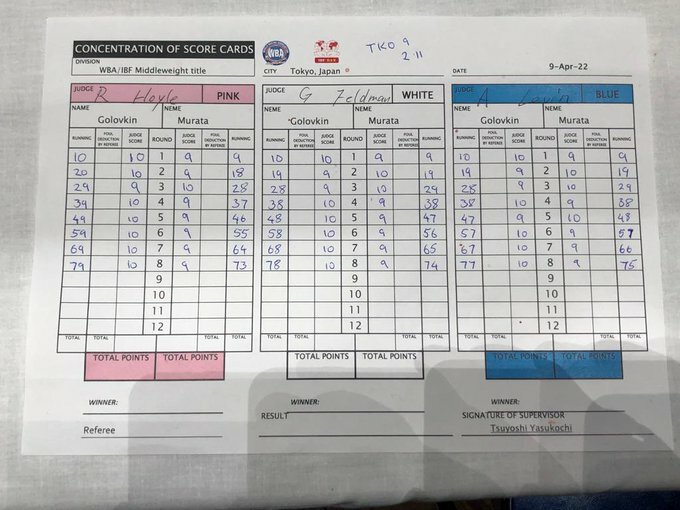 CONCENTRATION OF SCORE CARDS WBA TKO 9
2:11
DIVISION
WBA/IBF Middleweight title CITY Tokyo, Japan DATE 9-Apr-22
JUDGE R Hoyle PINK JUDGE G Feldman WHITE JUDGE A BLUE
NAME NEME NEME NEME NEME NEME
Golovkin Murata Golovkin Murata Golovkin Murata
RUNNING FOUL DEDUCTION BY REFEREE JUDGE SCORE ROUND JUDGE SCORE FOUL DEDUCTION BY REFEREE RUNNING RUNNING FOUL DEDUCTION BY REFEREE JUDGE SCORE ROUND JUDGE SCORE FOUL DEDUCTION BY REFEREE RUNNING RUNNING FOUL DEDUCTION BY REFEREE JUDGE SCORE ROUND JUDGE SCORE FOUL DEDUCTION BY REFEREE RUNNING
10 10 1 9 9 10 10 1 9 9 10 10 1 9 9
20 10 2 9 18 19 9 2 10 19 19 9 2 10 19
29 9 3 10 28 28 9 3 10 29 28 9 3 10 29
39 10 4 9 37 38 10 4 9 38 38 10 4 9 38
49 10 5 9 46 48 10 5 9 47 47 9 5 10 48
59 10 6 9 55 58 10 6 9 56 57 10 6 9 57
69 10 7 9 64 68 10 7 9 65 67 10 7 9 66
79 10 8 9 73 78 10 8 9 74 77 10 8 9 75
9 9 9
10 10 10
11 11 11
12 12 12
TOTAL TOTAL TOTAL TOTAL TOTAL TOTAL TOTAL TOTAL TOTAL TOTAL TOTAL TOTAL
TOTAL POINTS TOTAL POINTS TOTAL POINTS TOTAL POINTS TOTAL POINTS TOTAL POINTS
WINNER: WINNER: WINNER:
RESULT SIGNATURE OF SUPERVISOR
Referee Tsuyoshi Yasukochi